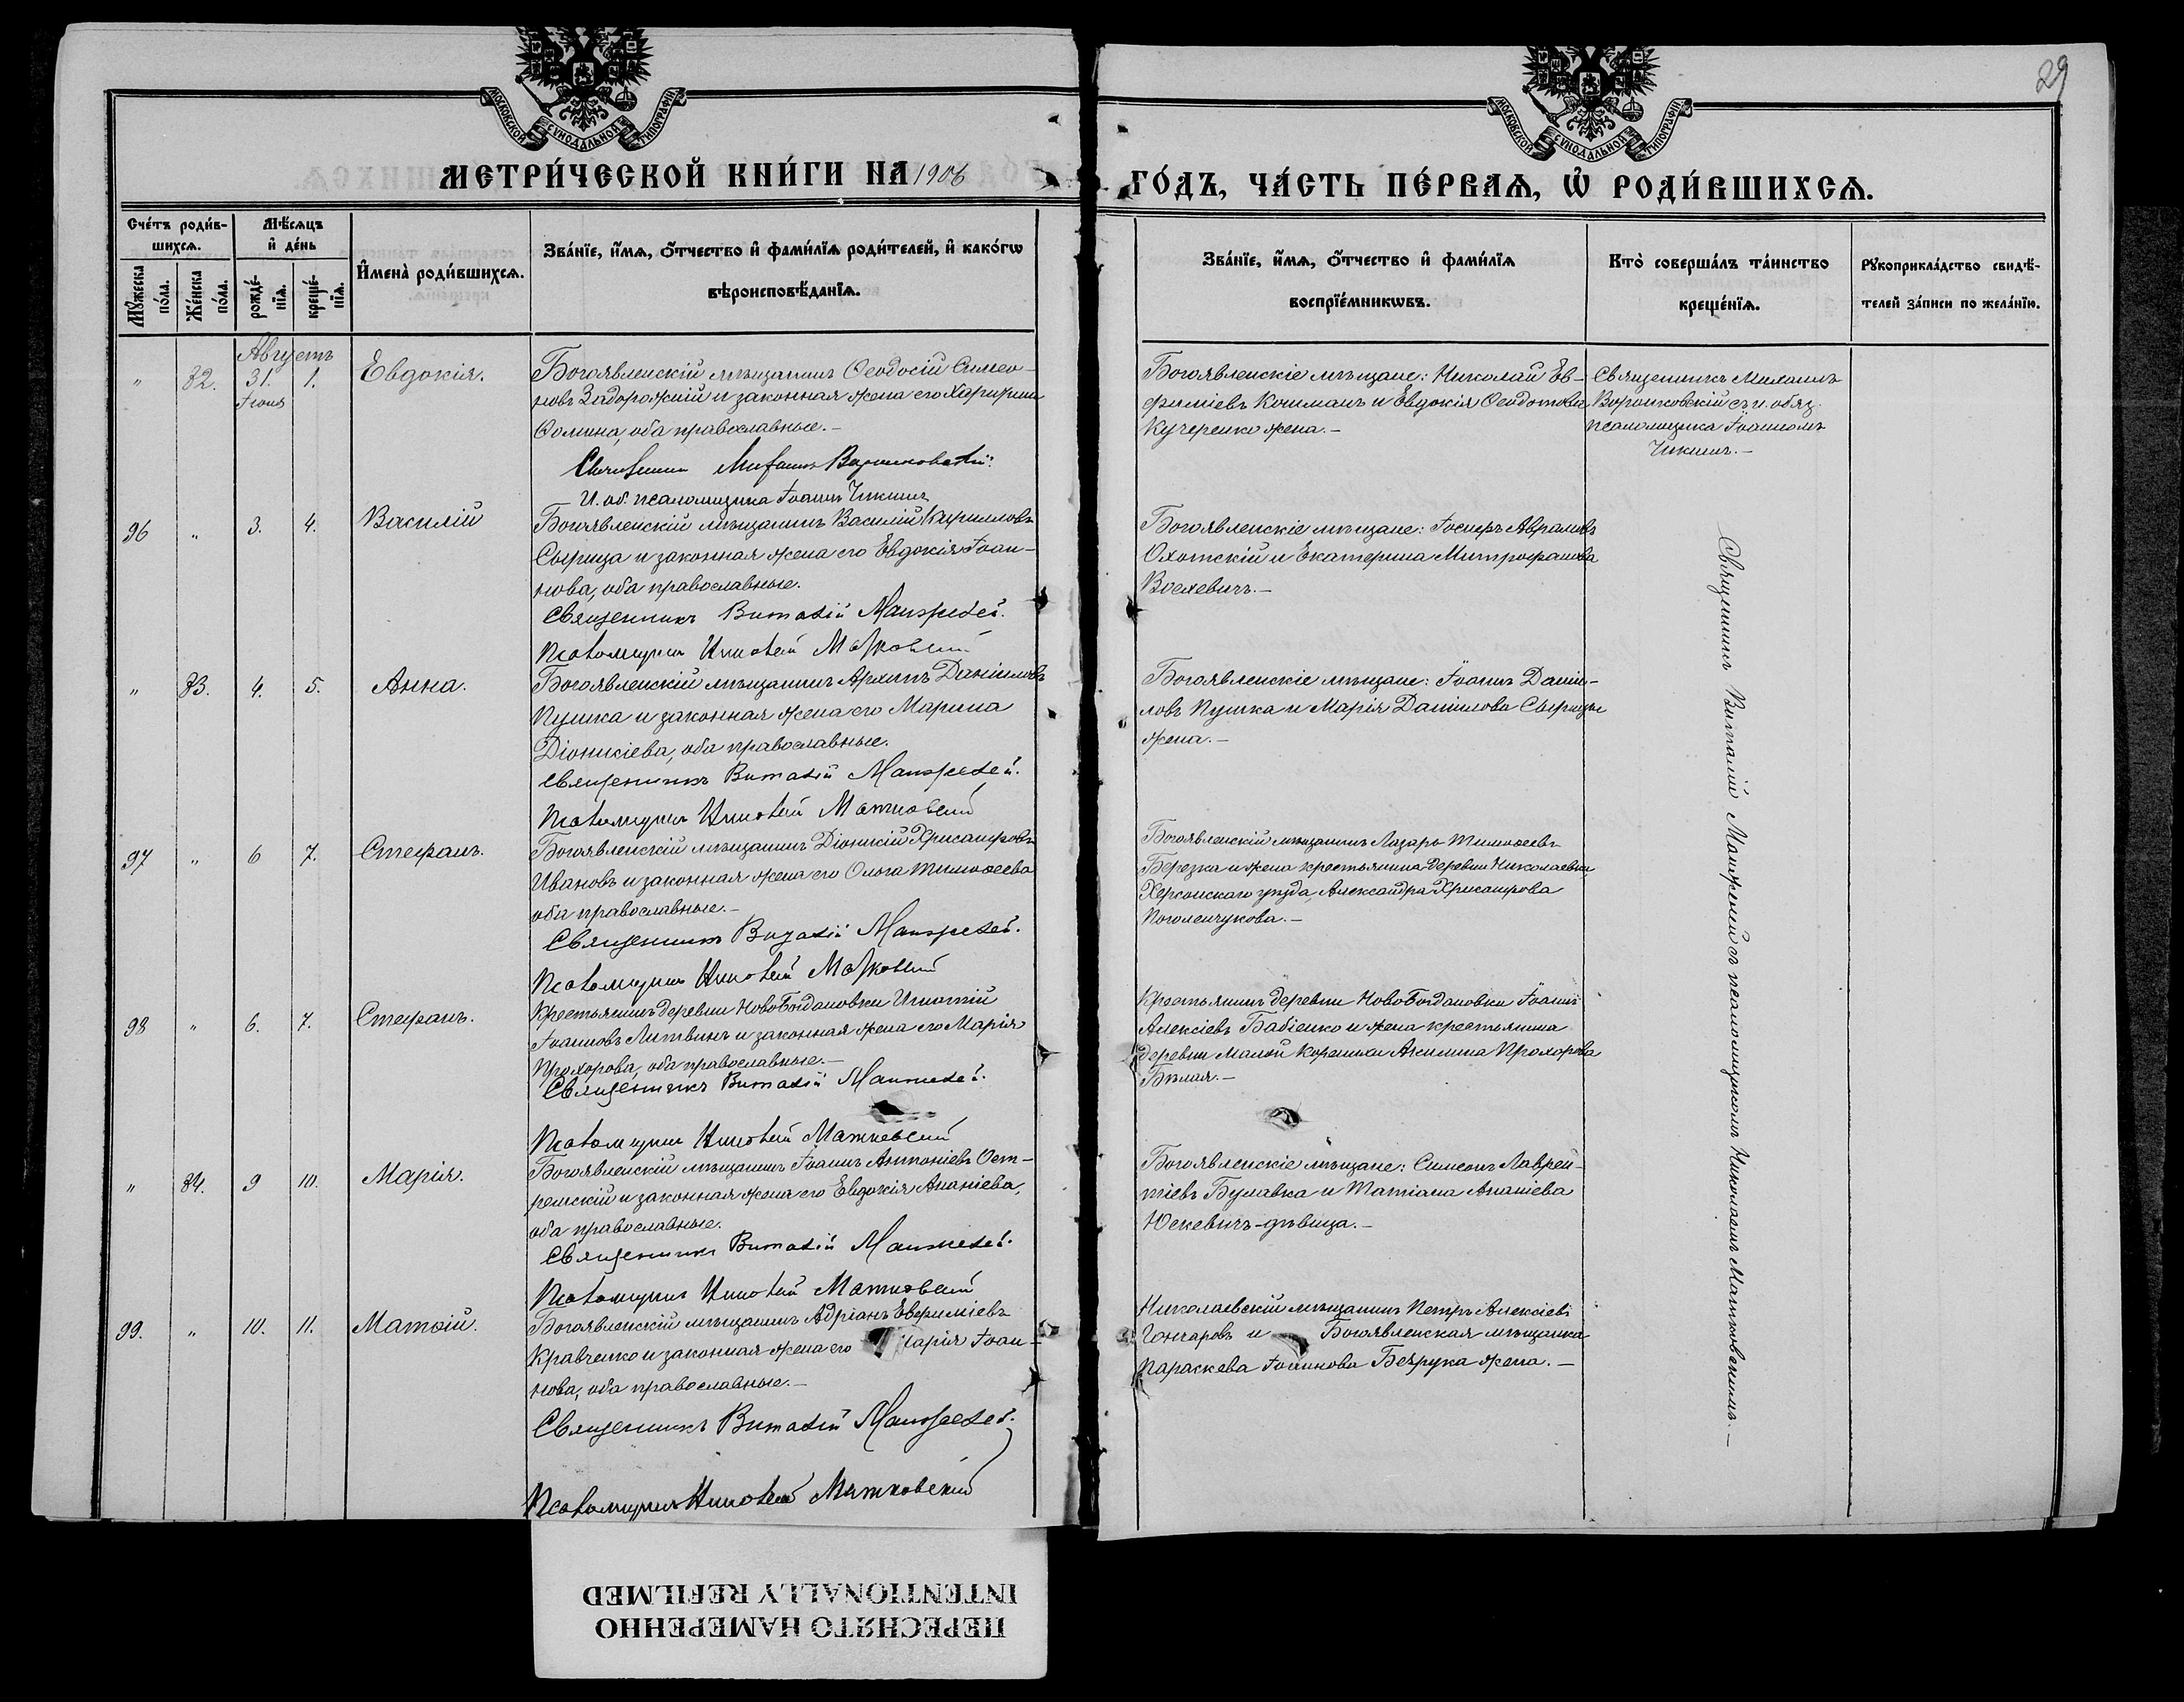 29
МОСКОВСКОЙ СѴНОДАЛЬНОЙ ТИПОГРАФІИ
МОСКОВСКОЙ СѴНОДАЛЬНОЙ ТИПОГРАФІИ
МЕТРИ́ЧЕСКОЙ КНИ́ГИ НА 1906
ГО́ДЪ, ЧА́СТЬ ПЕ́РВАѦ, Ѡ҆ РОДИ́ВШИХСѦ.
Сче́тъ роди́в-
шихсѧ.
Мꙋ́жеска по́ла.
Же́нска по́ла.
Мѣ́сѧцъ
и҆ де́нь
рожде́-
нїѧ.
креще́-
нїѧ.
И҆мена̀ роди́вшихсѧ.
Зва́нїе, и҆́мѧ, ѻ҆́тчество и҆ фами́лїѧ роди́телей, и҆ како́гѡ
вѣроисповѣ́данїѧ.
Зва́нїе, и҆́мѧ, ѻ҆́тчество и҆ фами́лїѧ
воспрїе́мникѡвъ.
Кто̀ соверша́лъ та́инство
креще́нїѧ.
Рꙋкоприкла́дство свидѣ́-
телей за́писи по жела́нїю.
Августъ
" 82. 31. 1. Евдокія.
Іюля
Богоявленскій мѣщанинъ Ѳеодосій Симео-
новъ Задорожній и законная жена его Харитина
Ѳомина, оба православные.-
Священникъ Михаилъ Воронковскій.
И. об. псаломщика Іоаннъ Чикинъ
Богоявленскіе мѣщане: Николай Ев-
ѳиміевъ Кошманъ и Евдокія Ѳеодотова
Кучеренко жена.-
Священникъ Михаилъ
Воронковскій съ и. обяз.
псаломщика Іоанномъ
Чикинъ.-
96 " 3. 4. Василій
Богоявленскій мѣщанинъ Василій Кирилловъ
Сырица и законная жена его Евдокія Іоан-
нова, оба православные.
Священникъ Виталій Манжелей.
Псаломщикъ Николай Матковскій
Богоявленскіе мѣщане: Іосифъ Аврамовъ
Охотскій и Екатерина Митрофанова
" 83. 4. 5. Анна.
Богоявленскій мѣщанинъ Архипъ Даніиловъ
Пушка и законная жена его Марина
Діонисіева, оба православные.
Священникъ Виталій Манжелей.
Псаломщикъ Николай Матковскій
Богоявленскіе мѣщане: Іоаннъ Даніи-
ловъ Пушка и Марія Даніилова Сырицы
жена.-
97 " 6 7. Стефанъ.
Богоявленскій мѣщанинъ Діонисій Хрисанфовъ
Ивановъ и законная жена его Ольга Тимоѳеева
оба православные.-
Священникъ Виталій Манжелей.
Псаломщикъ Николай Матковскій
Богоявленскій мѣщанинъ Лазарь Тимоѳеевъ
Березка и жена крестьянина деревни Николаевки
Херсонскаго уѣзда, Александра Хрисанфова
98 " 6. 7. Стефанъ.
Крестьянинъ деревни НовоБогдановки Игнатій
Іоанновъ Литвинъ и законная жена его Марія
Прохорова, оба православные.-
Священникъ Виталій Манжелей.
Псаломщикъ Николай Матковскій
Крестьянинъ деревни НовоБогдановки Іоаннъ
Алексіевъ Бабіенко и жена крестьянина
деревни Малой Коренихи Акилина Прохорова
Бѣлая.-
" 84. 9 10. Марія.
Богоявленскій мѣщанинъ Іоаннъ Антоніевъ Ост-
ремскій и законная жена его Евдокія Ананіева,
оба православные.
Священникъ Виталій Манжелей.
Псаломщикъ Николай Матковскій
Богоявленскіе мѣщане: Симеонъ Лаврен-
тіевъ Булавка и Татіана Ананіева
Юскевичъ-дѣвица.-
99. " 10. 11. Матѳій.
Богоявленскій мѣщанинъ Адріанъ Евфиміевъ
Кравченко и законная жена его Марія Іоан-
нова, оба православные.-
Священникъ Виталій Манжелей.
Псаломщикъ Николай Матковскій
Николаевскій мѣщанинъ Петръ Алексіевъ
Гончаровъ и Богоявленская мѣщанка
Параскева Іоаннова Безрука жена.-
Священникъ Виталій Манжелей съ псаломщикомъ Николаемъ Матковскимъ.-
ПЕРЕСНЯТО НАМЕРЕННО
INTENTIONALLY REFILMED